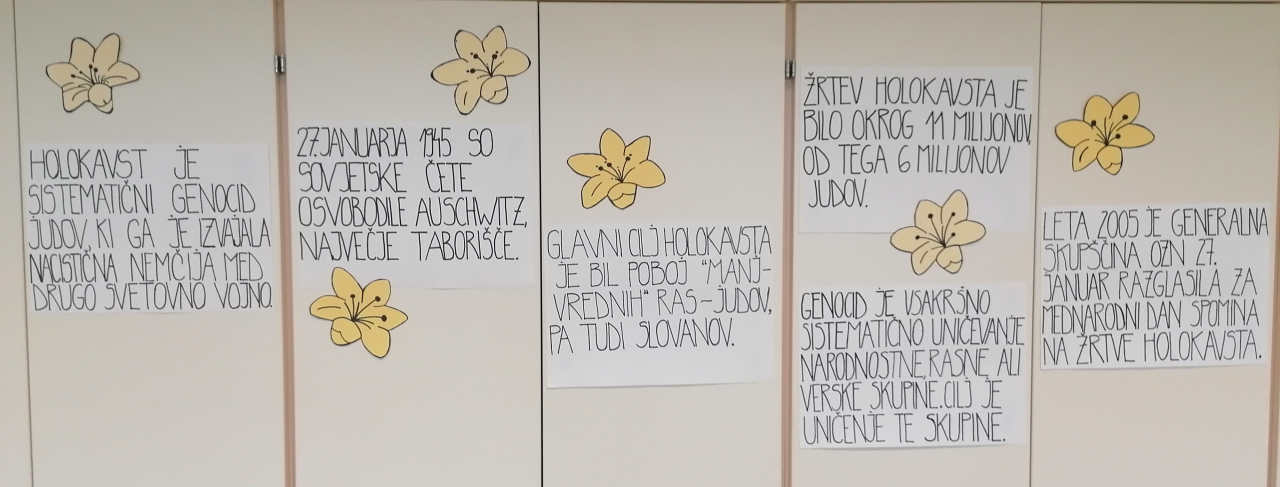 HOLOKAVST JE
SISTEMATIČNI GENOCID
JUDOV, KI GA JE IZVAJALA
NACISTIČNA NEMČIJA MED
DRUGO SVETOVNO VOJNO.
27.JANUARJA 1945 SO
SOVJETSKE ČETE
OSVOBODILE AUSCHWITZ,
NAJVEČJE TABORIŠČE.
GLAVNI CILJ HOLOKAVSTA
JE BIL POBOJ "MANJ-
VREDNIH" RAS-JUDOV,
PA TUDI SLOVANOV.
ŽRTEV HOLOKAVSTA JE
BILO OKROG 11 MILIJONOV,
OD TEGA 6 MILIJONOV
JUDOV.
GENOCID JE VSAKRŠNO
SISTEMATIČNO UNIČEVANJE
NARODNOSTNE, RASNE ALI
VERSKE SKUPINE. CILJ JE
UNIČENJE TE SKUPINE.
LETA 2005 JE GENERALNA
SKUPŠČINA OZN 27.
JANUAR RAZGLASILA ZA
MEDNARODNI DAN SPOMINA
NA ŽRTVE HOLOKAVSTA.